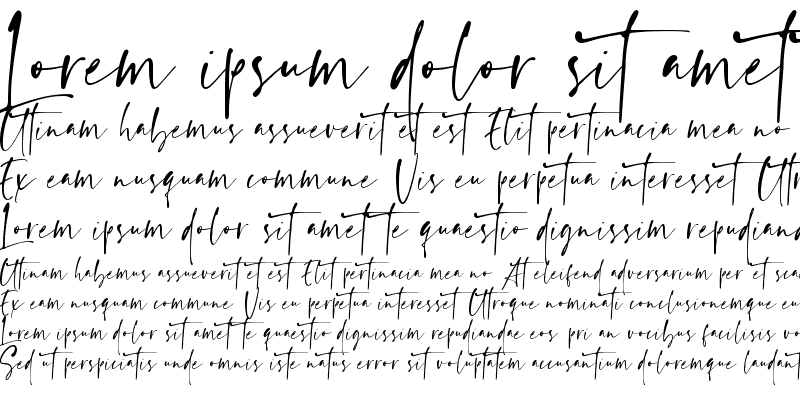 Lorem ipsum dolor sit amet
Utinam habemus assueverit et est Elit pertinacia mea no
Ex eam nusquam commune Vis eu perpetua interesset Utr
Lorem ipsum dolor sit amet te quaestio dignissim repudianda
Utinam habemus assueverit et est Elit pertinacia mea no At eleifend adversarium per et sca
Ex eam nusquam commune Vis eu perpetua interesset Utroque nominati conclusionemque eu
Lorem ipsum dolor sit amet te quaestio dignissim repudiandae eos pri an vocibus facilisis vo
Sed ut perspiciatis unde omnis iste natus error sit voluptatem accusantium doloremque laudant